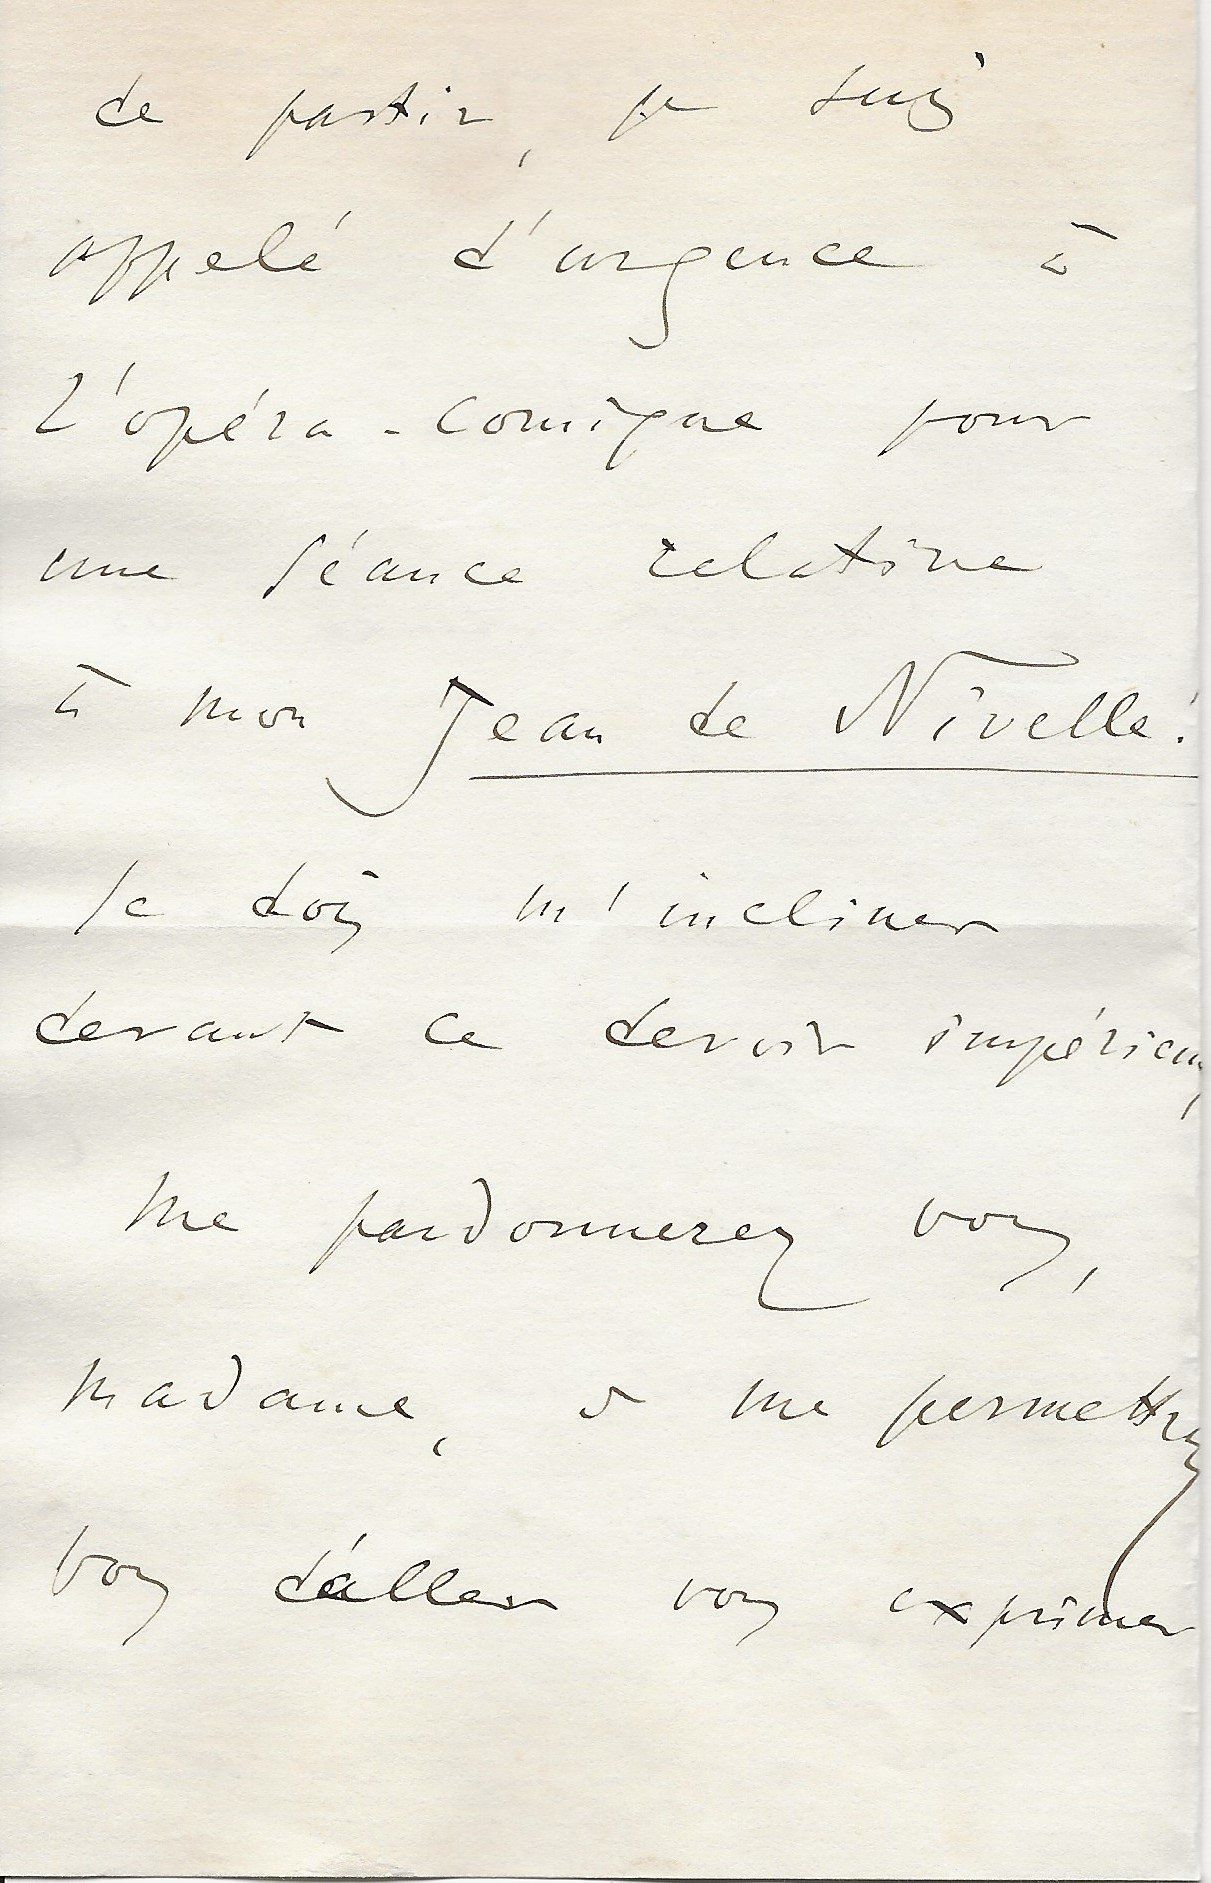 de partir, je suis
appelé d'urgence à
l'opéra-comique pour
une séance relative
à mon Jean de Nivelle!
Je dois m'incliner
devant ce devoir impérieux,
me pardonnerez vous,
madame, & me permettrez
vous d'aller vous exprimer